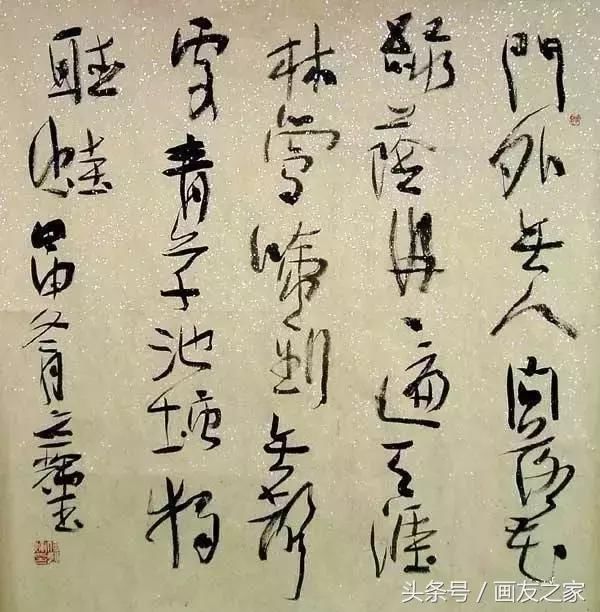 門外無人問落花
綠蔭冉冉遍天涯
林鶯啼到無聲
處青草池塘獨
聽蛙 甲申冬月
头条号 / 画友之家